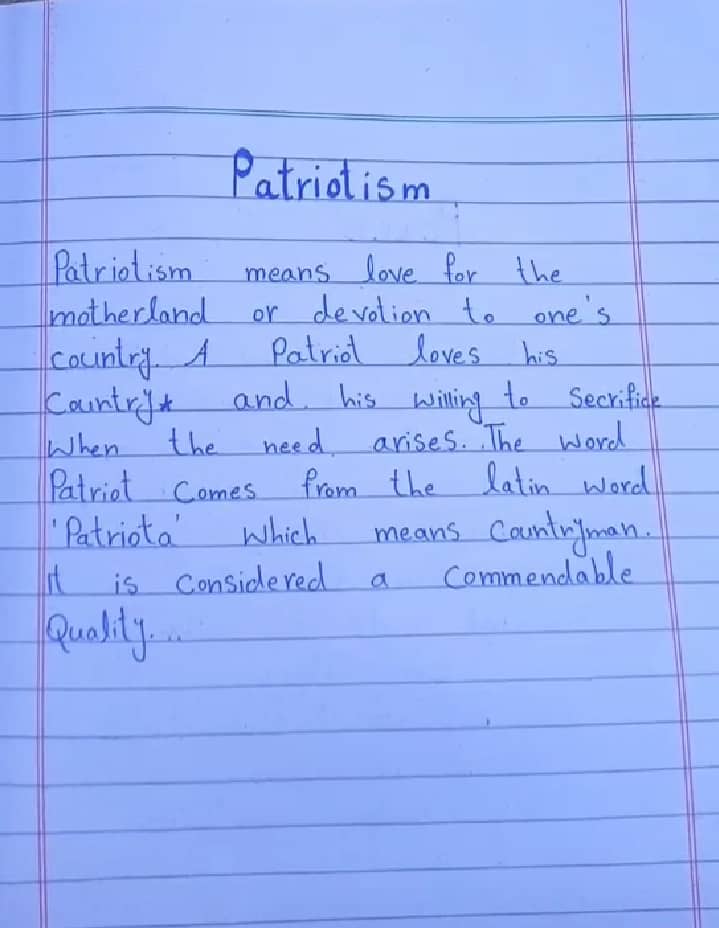 Patriotism
Patriotism means love for the
motherland or devotion to one's
country. A Patriot loves his
Country* and his willing to Secrifice
When the need arises. The word
Patriot Comes from the latin word
'Patriota' Which means Countryman.
it is Considered a Commendable
Quality...